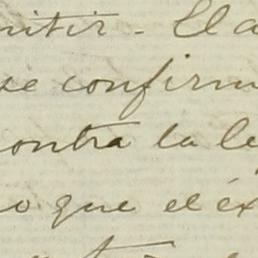 mitir - El a
se confirm
contra la le
o que el éx